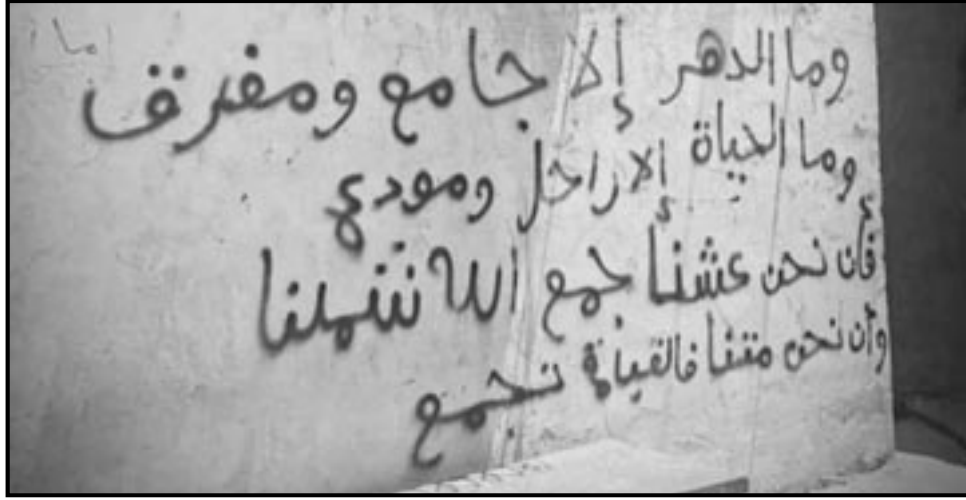 وما الدهر إلا جامع ومفرق
وما الحياة إلا راحل ومودع
فأن نحن عشنا جمع الله شملنا
وأن نحن متنا فالقيامة تجمع